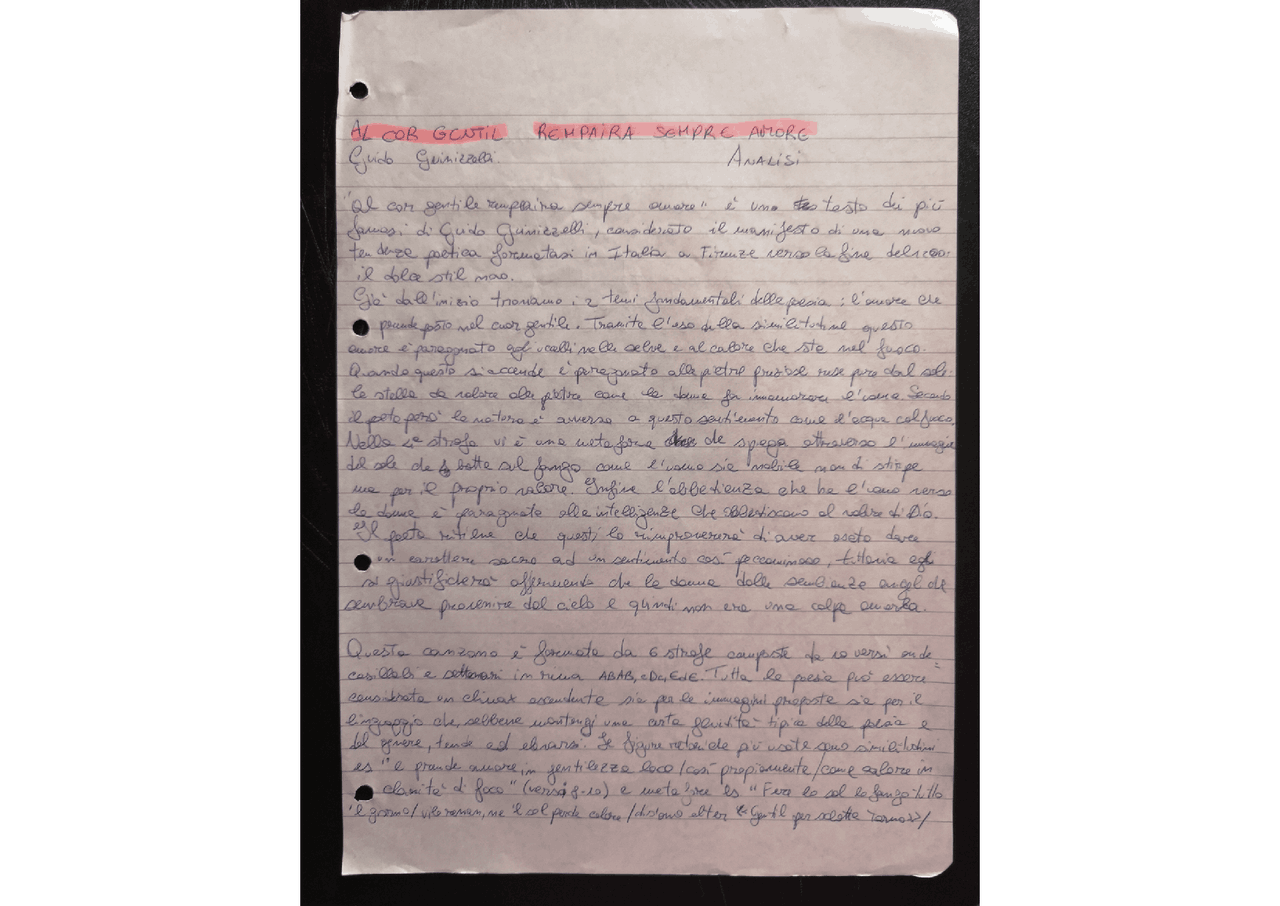 AL COR GENTIL REMPAIRA SEMPRE AMORE
Guido Guinizzelli. ANALISI
"Al cor gentile rempaira sempre amore" è uno testo dei più
famosi di Guido Guinizzelli, considerato il manifesto di una nuova
tendenza poetica formatasi in Italia a Firenze verso la fine del
il dolce stil novo.
Già dall'inizio troviamo i 2 temi fondamentali della poesia: l'amore che
prende posto nel cuor gentile. Tramite l'uso della similitudine questo
amore è paragonato agli uccelli nella selva e al calore che sta nel fuoco.
Quando questo si accende è paragonato alle pietre preziose rese pure dal sole:
la stella da valore alla pietra come la donna fa innamorare l'uomo. Secondo
il poeta però la natura è avversa a questo sentimento come l'acqua col fuoco.
Nella strofa vi è una metafora che spiega attraverso l'immagine
del sole che batte sul fango come l'uomo sia nobile non di stirpe
ma per il proprio valore. Infine l'obbedienza che ha l'uomo verso
la donna è paragonata alle intelligenze che obbediscono al volere di Dio.
Il poeta ritiene che questi lo rimprovererà di aver osato dare
un carattere sacro ad un sentimento così peccaminoso, tuttavia egli
si giustificherà affermando che la donna dalle sembianze angeliche
sembrava provenire dal cielo e quindi non era una colpa amarla.
Questa canzone è formata da 6 strofe composte da 10 versi ende-
casillabi e settenari in rima ABAB, cDcEdE. Tutta la poesia può essere
considerata un climax ascendente sia per le immagini proposte sia per il
linguaggio che, sebbene mantengi una certa tipica della poesia e
del genere, tende ad elevarsi. Le figure retoriche più usate sono similitudini
es "e prende amore in gentilezza loco/così propiamente/come calore in
clarità di foco" (versi 8-10) e metafore es "Fere lo sol lo fango tutto
'l giorno/ vile reman, né 'l sol perde calore/ dis'omo alter Gentil per sclatta torno"/